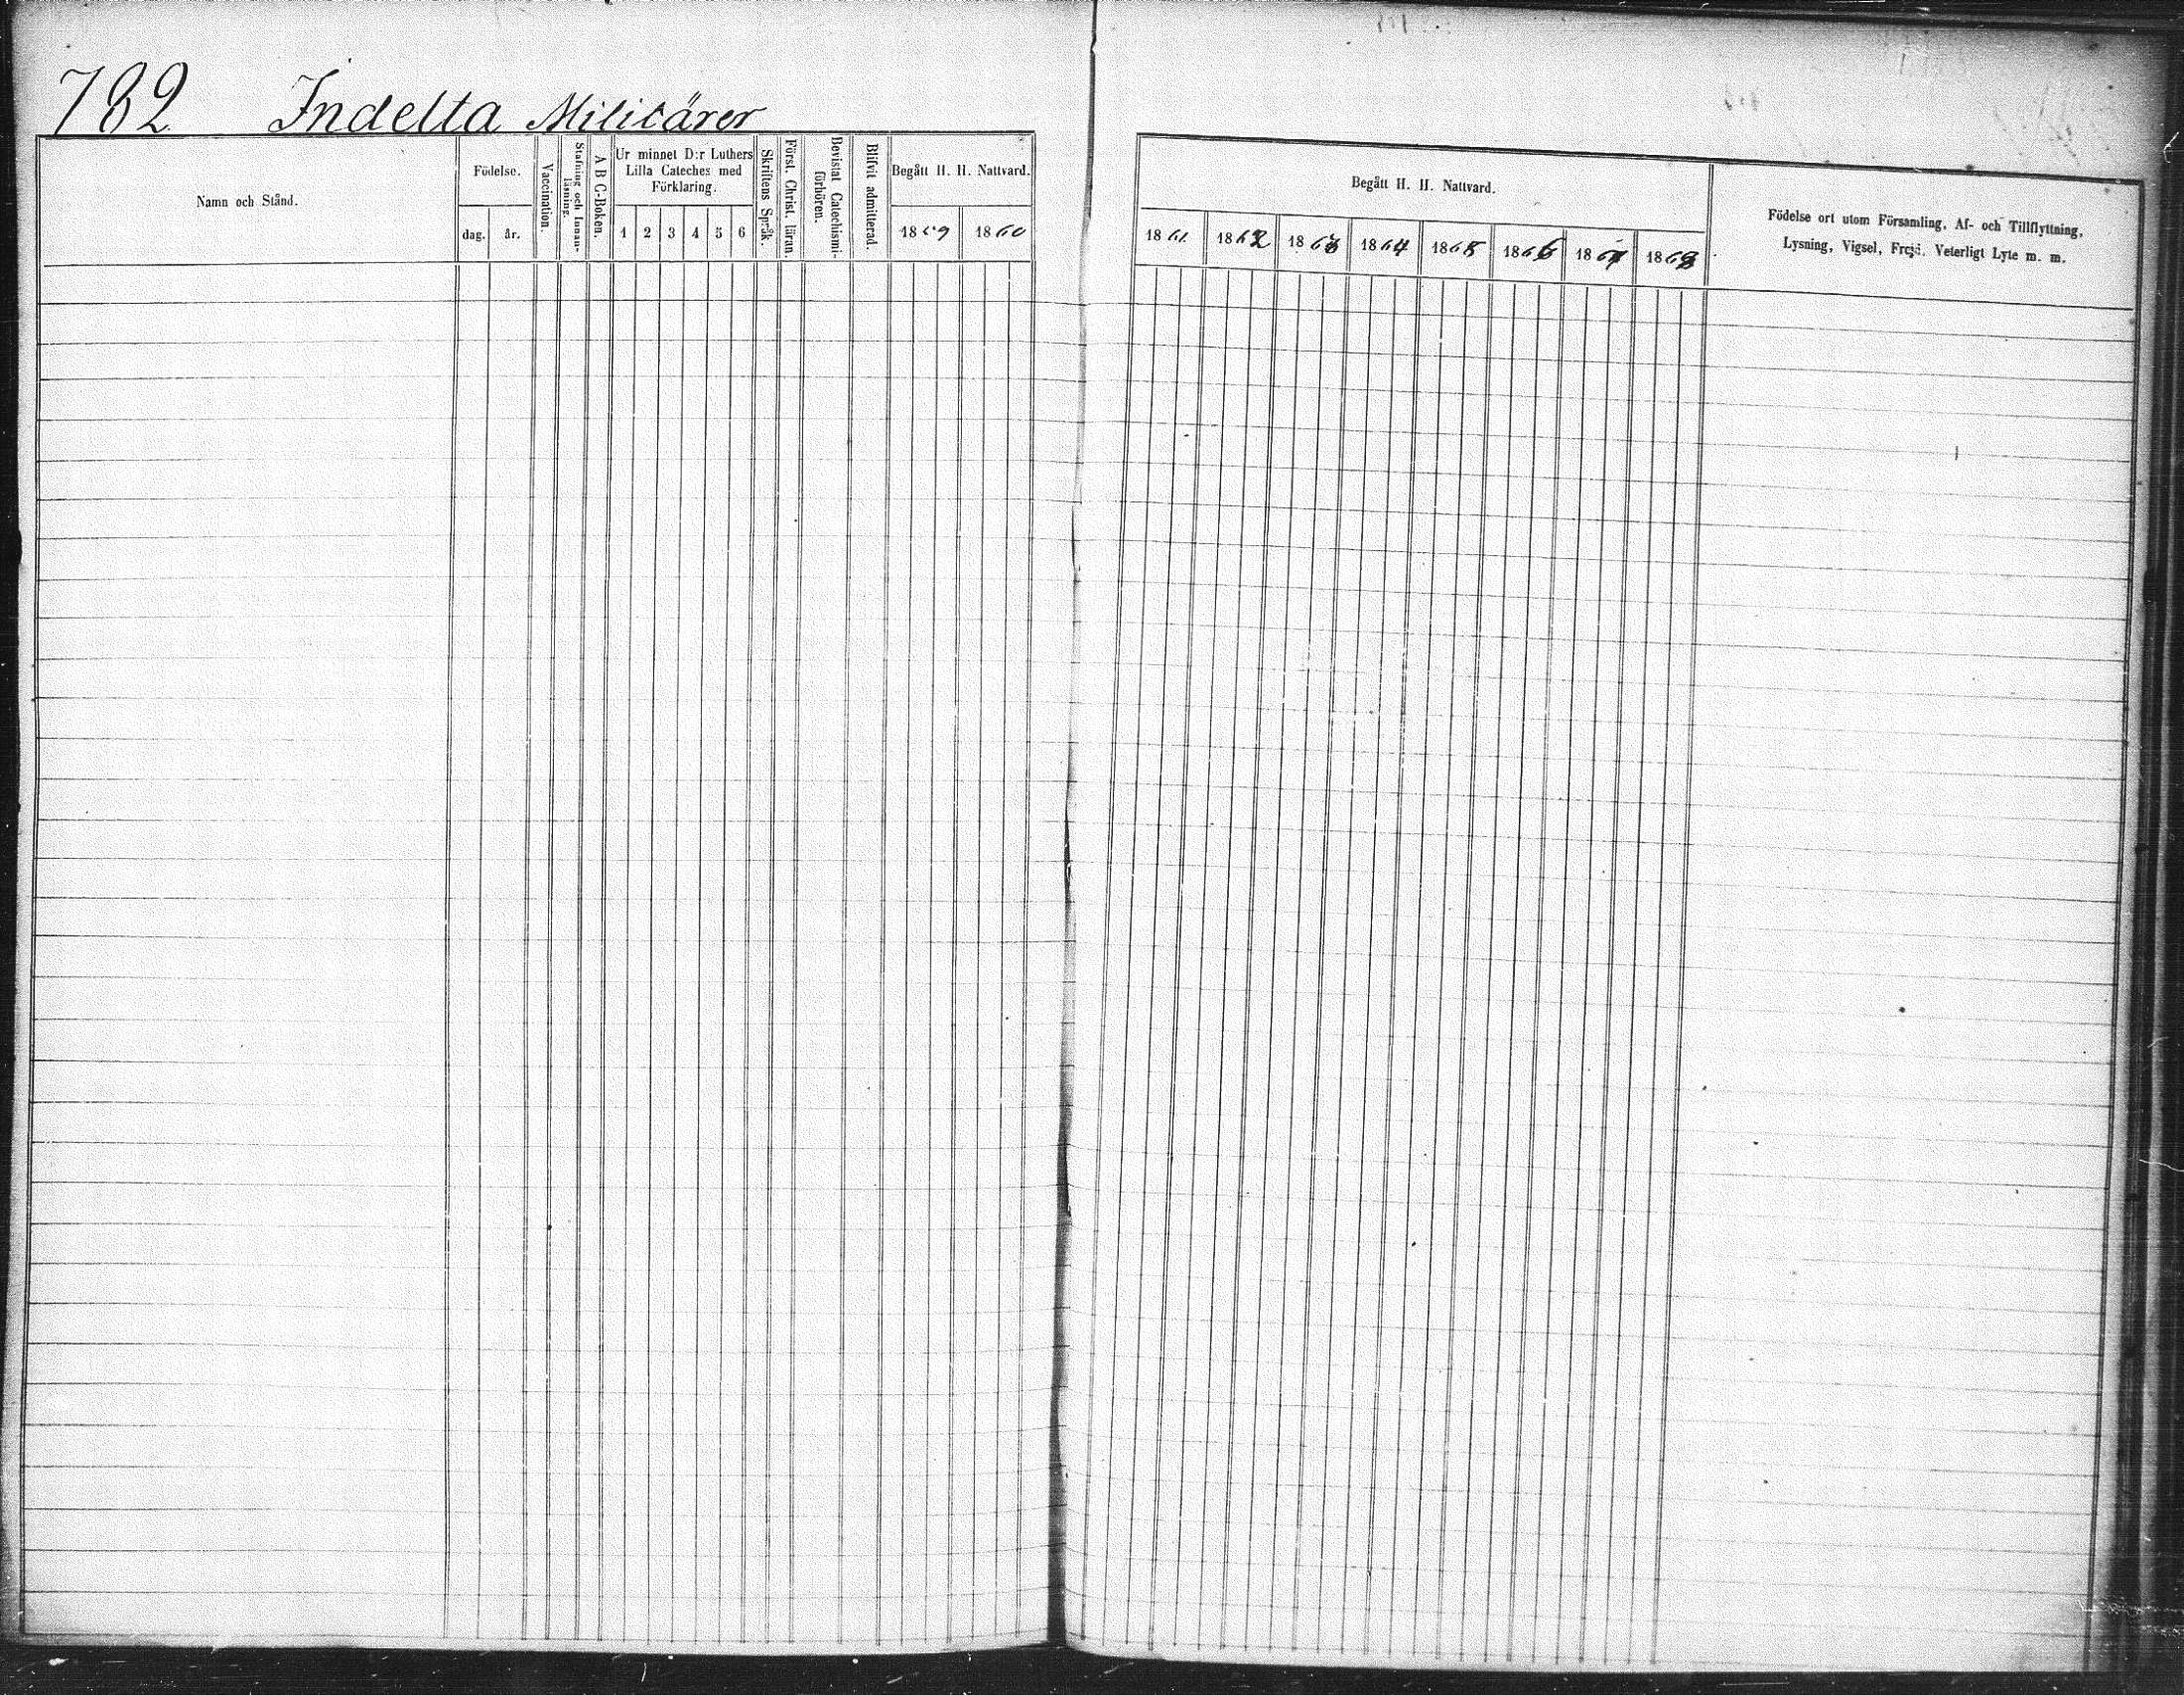 782 Indelta Militärer
Namn och Stånd.
Födelse.
dag.
år.
Vaccination.
Stafning och Innan-
läsning.
A B C-Boken.
Ur minnet D:r Luthers
Lilla Cateches med
Förklaring.
1 2 3 4 5 6
Skriftens Språk.
Först. Christ. läran.
Bevistat Catechismi-
förhören.
Blifvit admitterad.
Begått H. H. Nattvard.
1859 1860
Begått H. H. Nattvard.
1861. 1862 1863 1864 1865 1866 1867 1868
Födelse ort utom Församling, Af- och Tillflyttning,
Lysning, Vigsel, Frejd. Veterligt Lyte m. m.